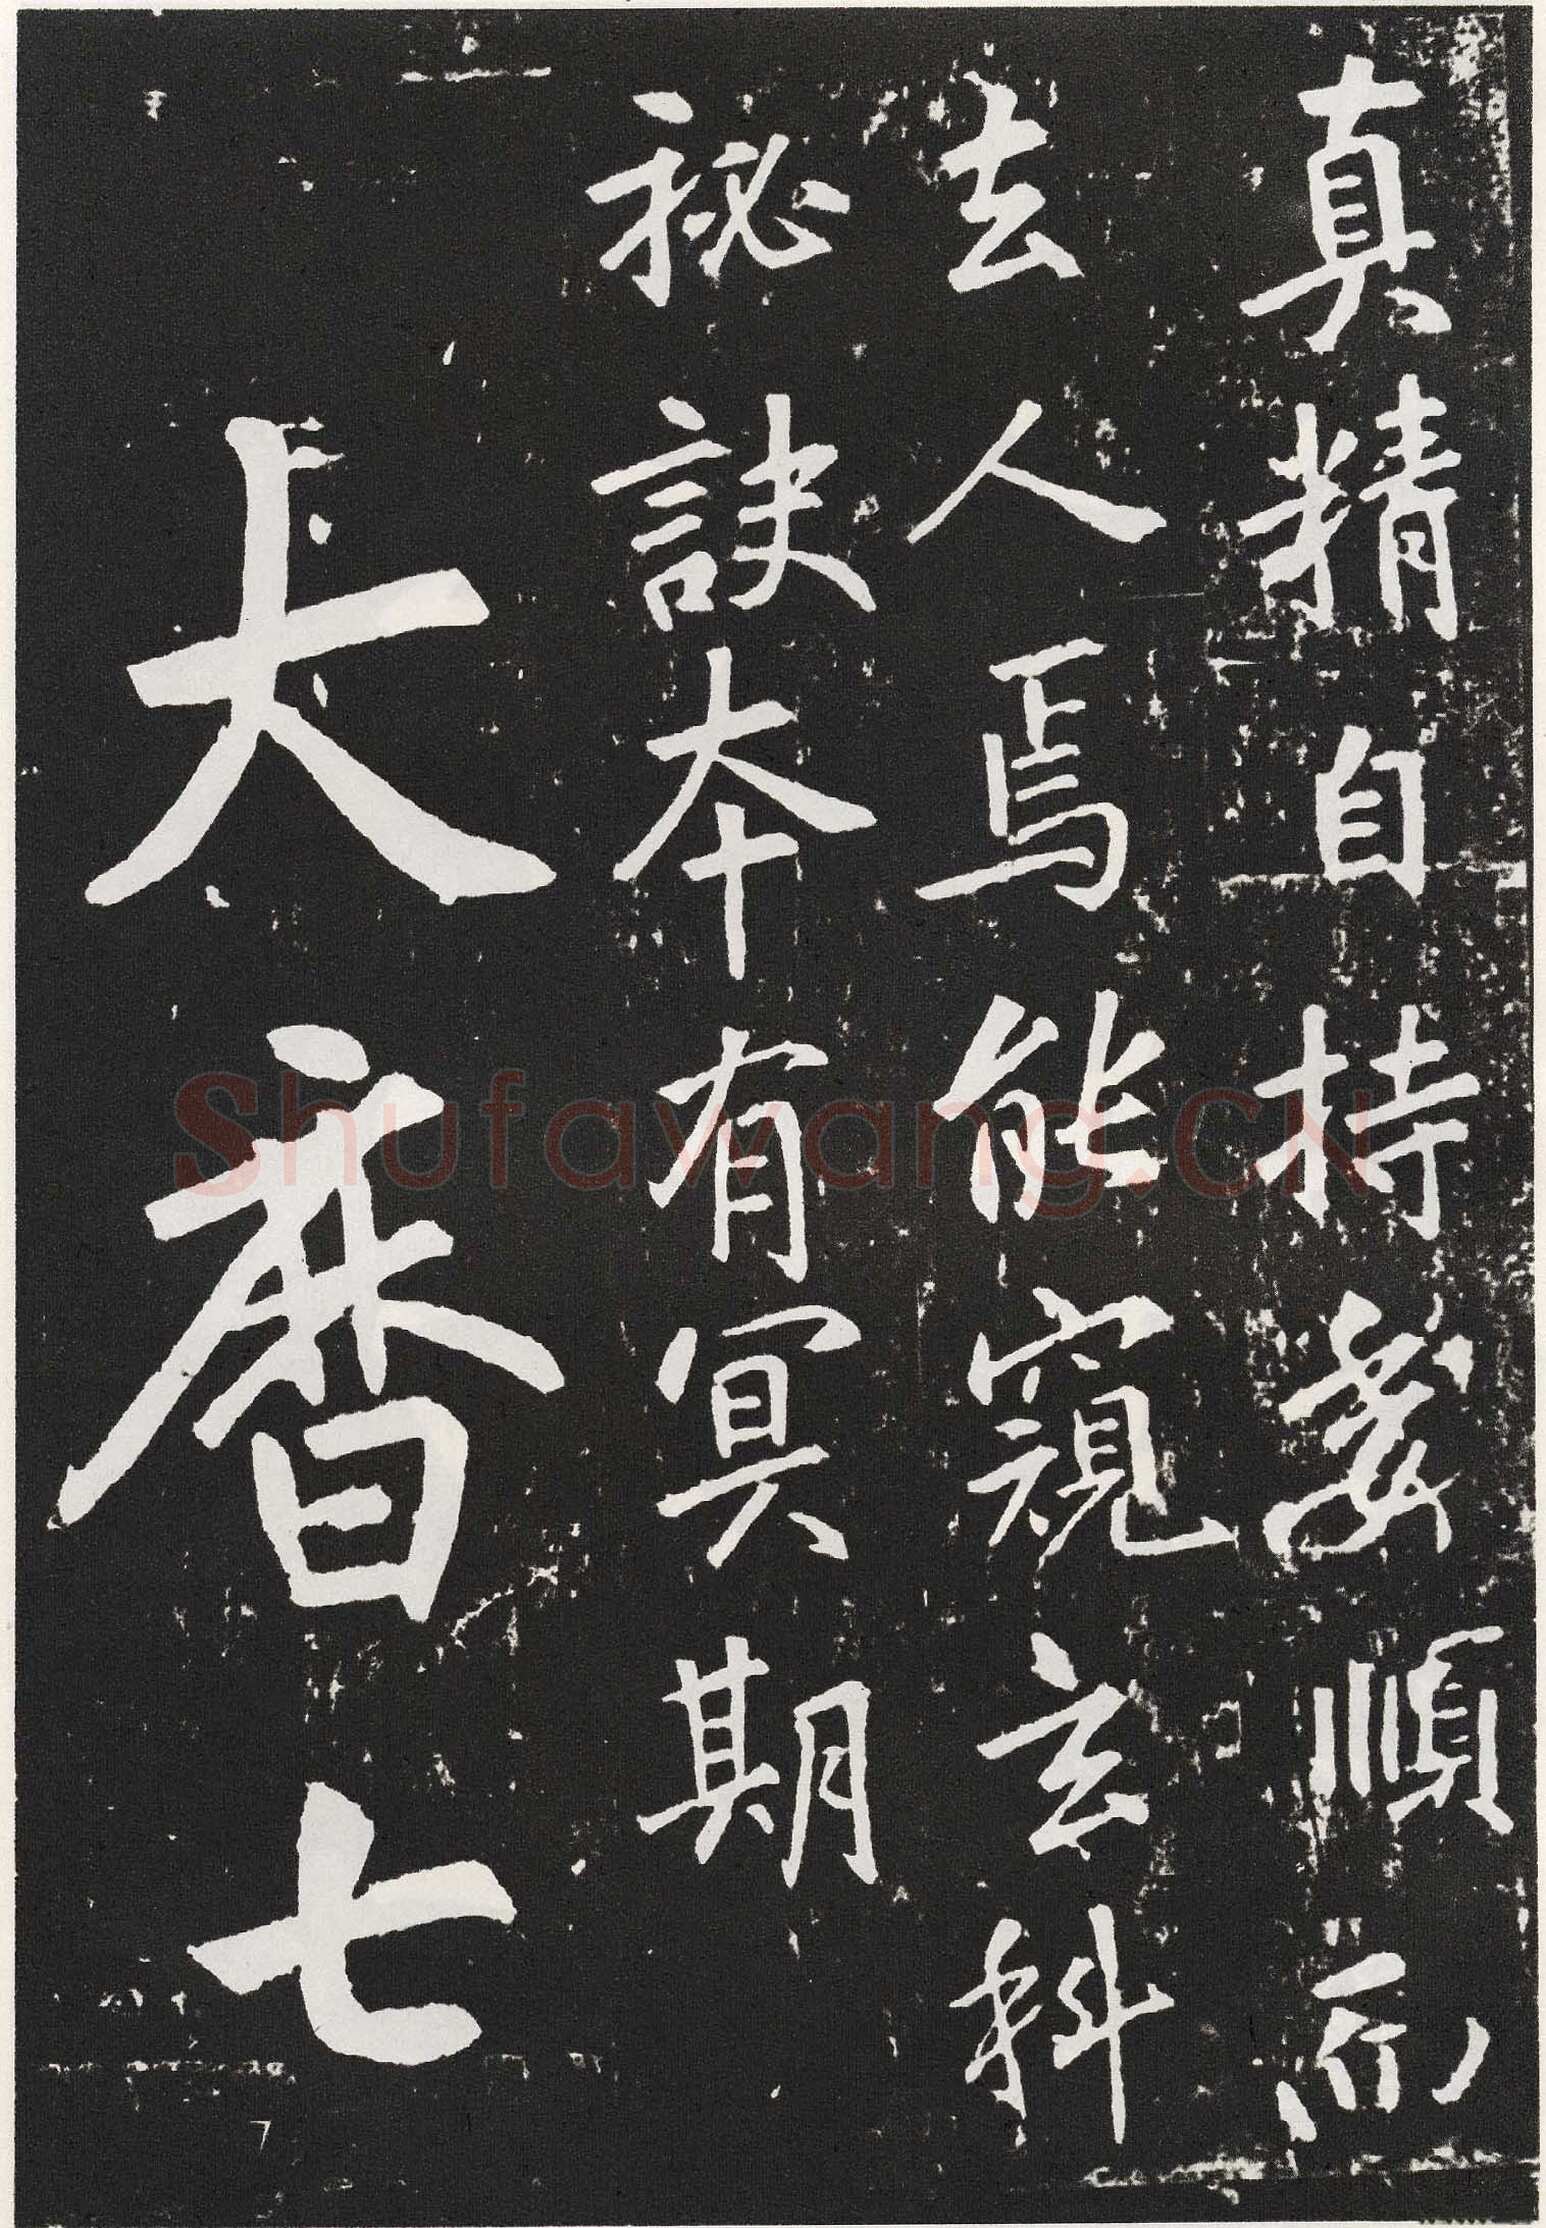 真精自持順
去人焉能窺玄科
祕訣本有冥期
大曆七
Shufawang.CN